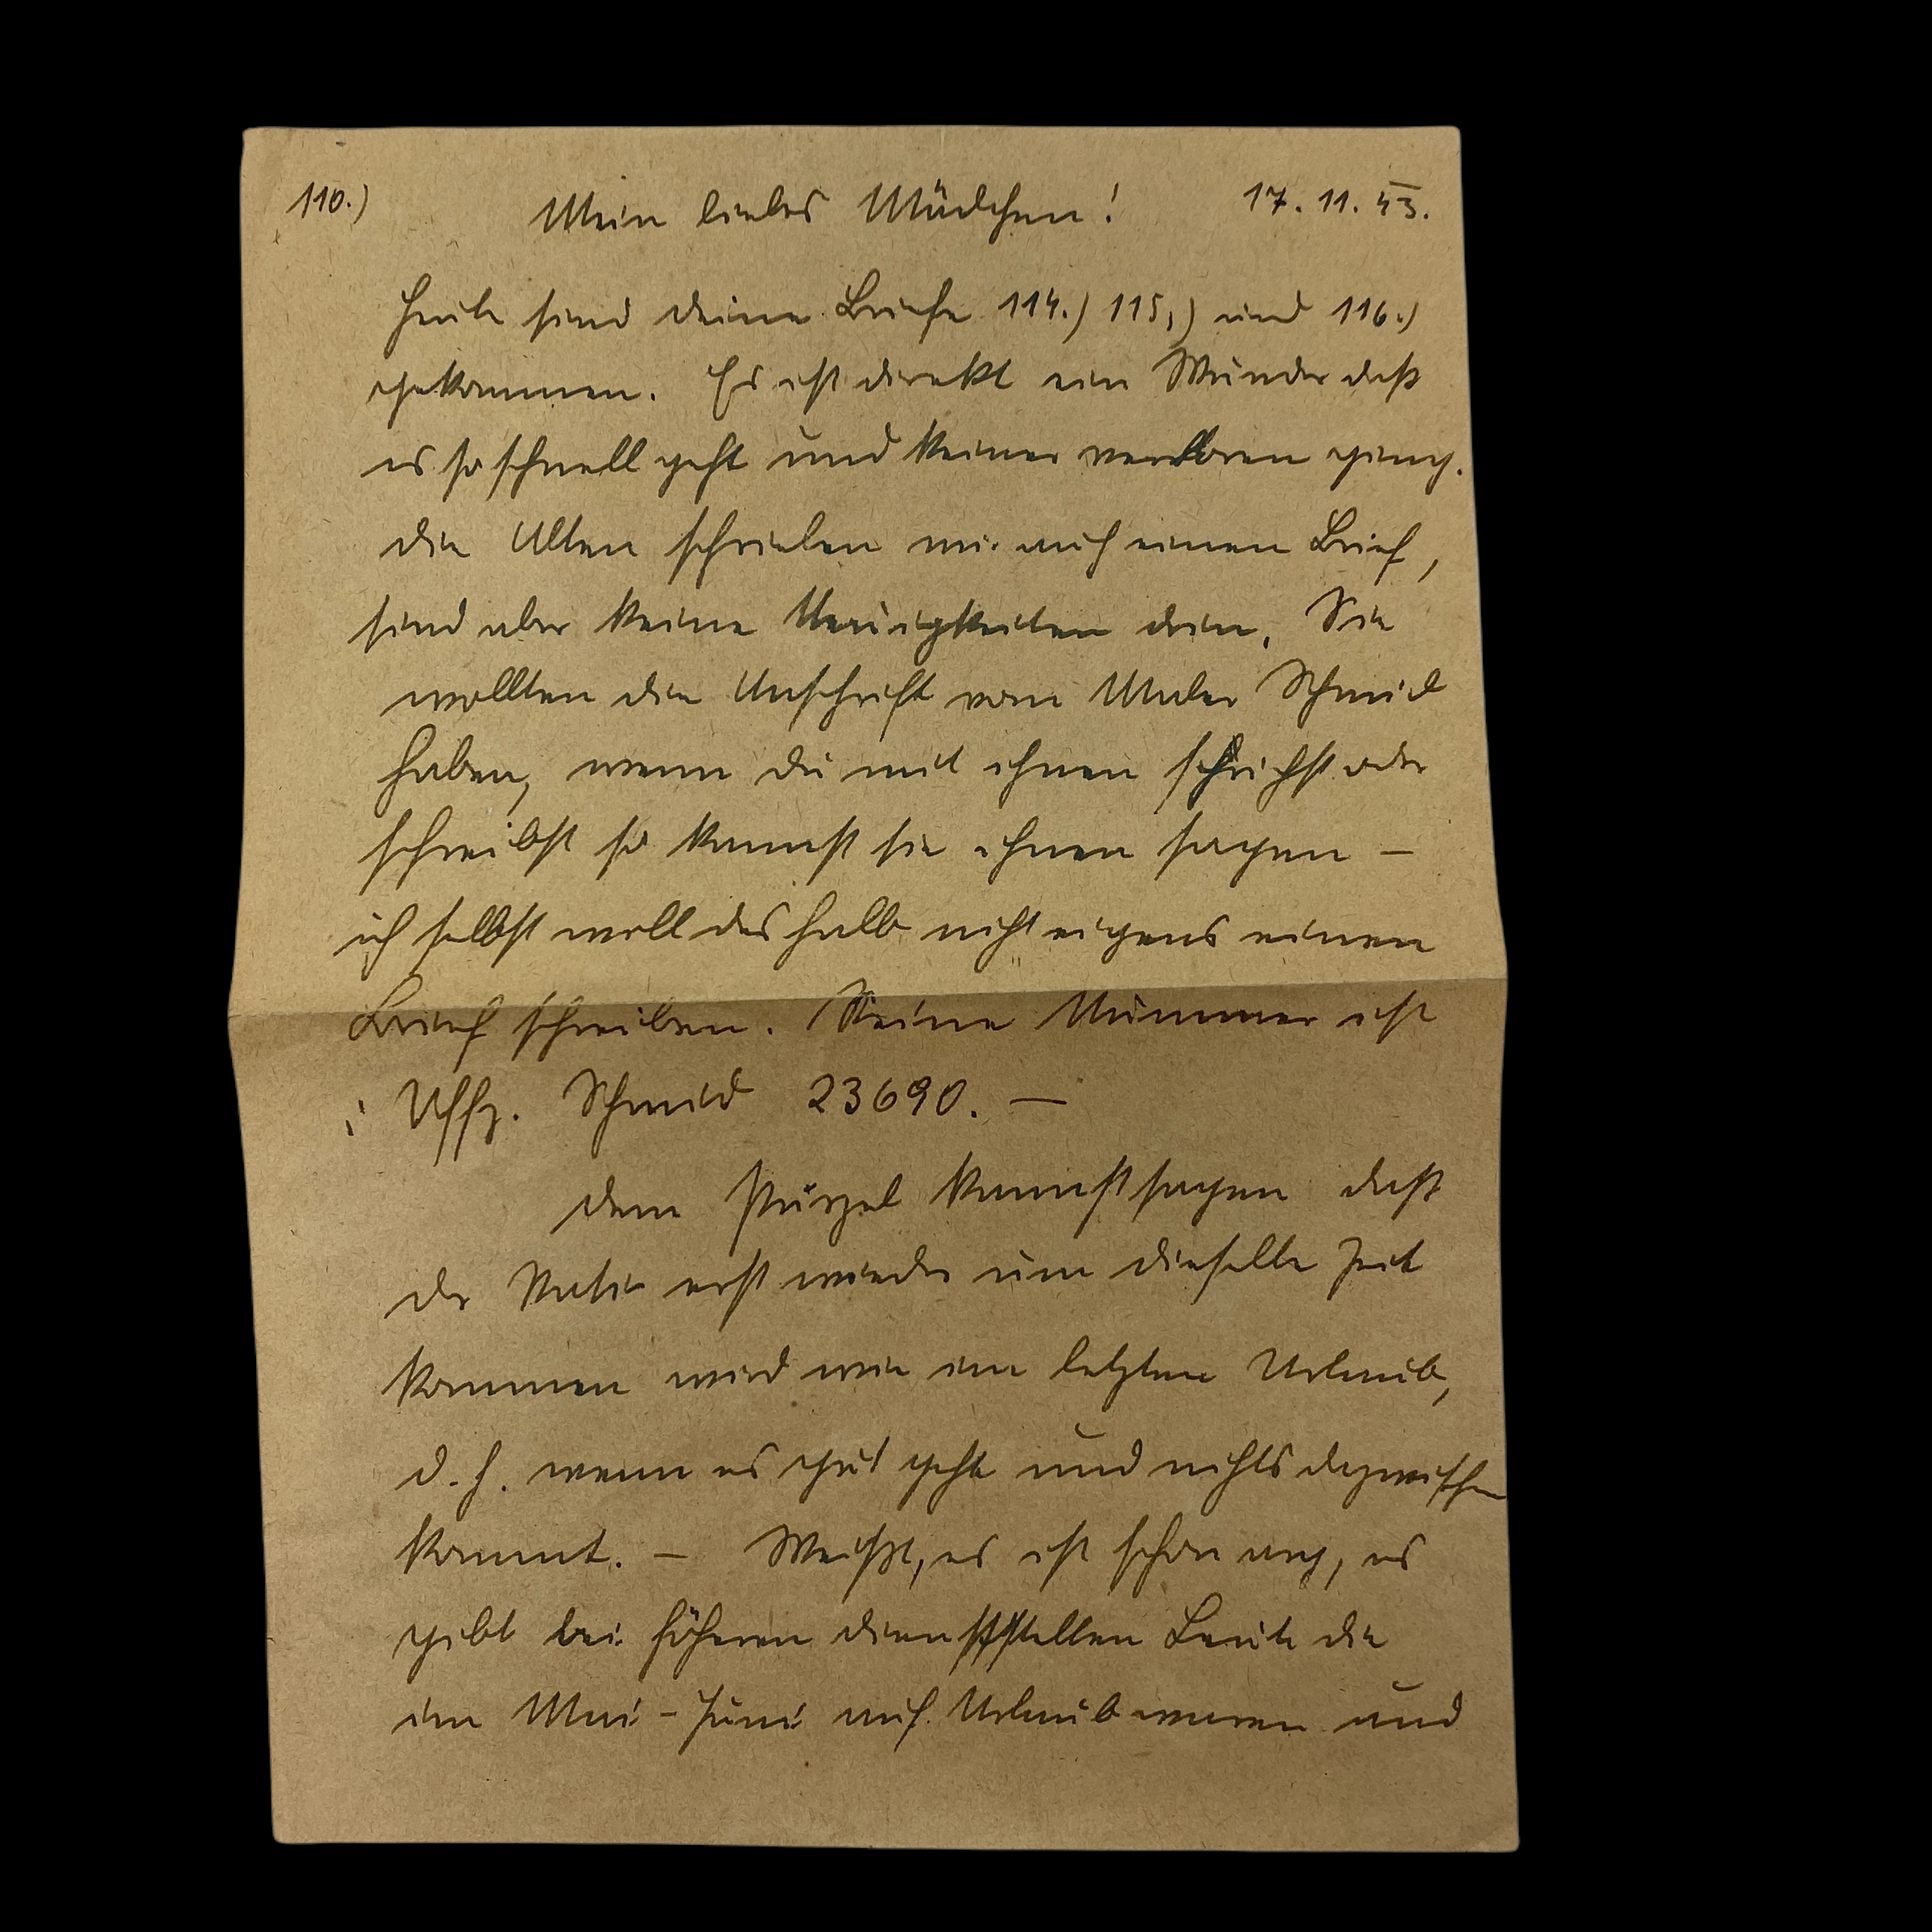 110.) Mein liebes Mädchen! 17.11.43.
Heute sind deine Briefe 114.) 115.) und 116.)
gekommen. Es ist direkt ein Wunder daß
es so schnell geht und keiner verloren ging.
Die Alten schrieben mir auch einen Brief,
sind aber keine Neuigkeiten drin. Sie
wollten die Anschrift vom Maler Schmid
haben, wenn du mit ihnen sprichst oder
schreibst so kannst sie ihnen sagen –
ich selbst will deshalb nicht eigens einen
Brief schreiben. Seine Nummer ist
: Uffz. Schmid 23690. —
Dem Purzel kannst sagen daß
der Vater erst wieder um dieselbe Zeit
kommen wird wie im letzten Urlaub,
d. h. wenn es gut geht und nichts dazwischen
kommt. – Weißt, es ist schon arg, es
gibt bei höheren Dienststellen Leute die
im Mai – Juni auf Urlaub waren und